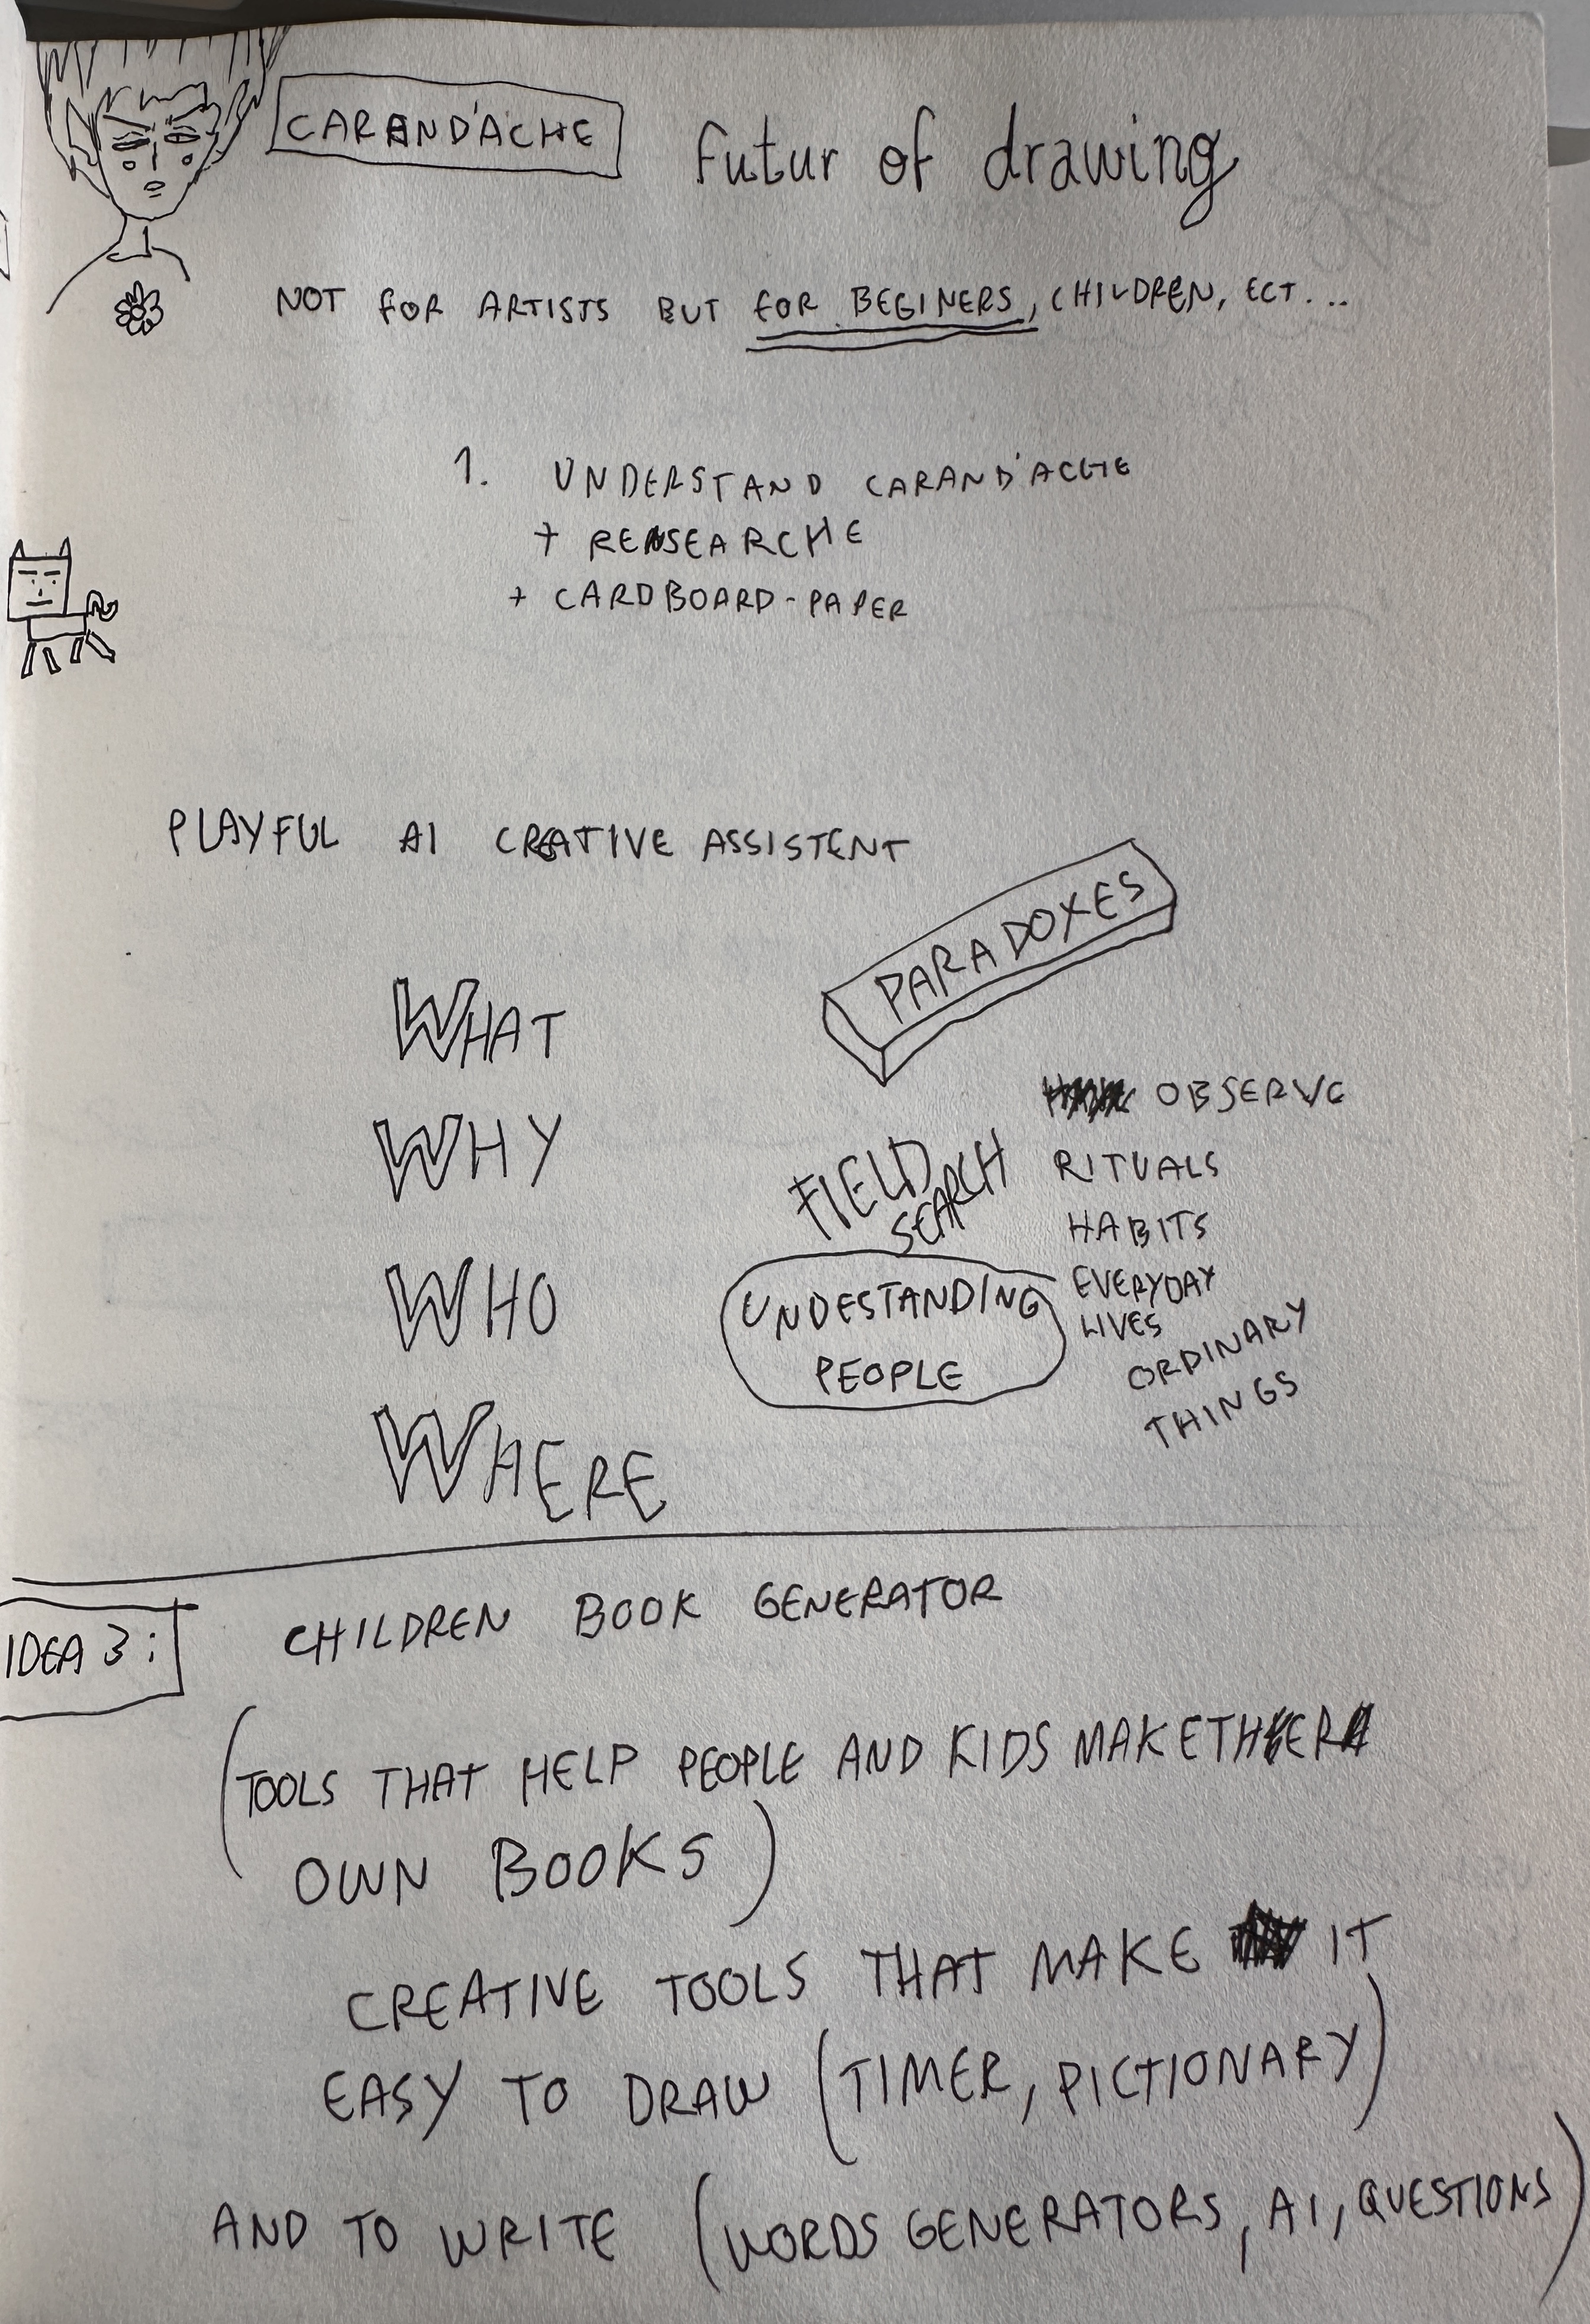 CARAND'ACHE
Futur of drawing
NOT FOR ARTISTS BUT FOR BEGINERS, CHILDREN, ECT...
1. UNDERSTAND CARAND'ACHE
+ RESEARCHE
+ CARDBOARD-PAPER
PLAYFUL AI CREATIVE ASSISTENT
PARADOXES
WHAT
WHY
WHO
WHERE
FIELD
SEARCH
UNDESTANDING
PEOPLE
OBSERVE
RITUALS
HABITS
EVERYDAY
LIVES
ORDINARY
THINGS
IDEA 3:
CHILDREN BOOK GENERATOR
(TOOLS THAT HELP PEOPLE AND KIDS MAKE THER
OWN BOOKS)
CREATIVE TOOLS THAT MAKE IT
EASY TO DRAW (TIMER, PICTIONARY)
AND TO WRITE (WORDS GENERATORS, AI, QUESTIONS)